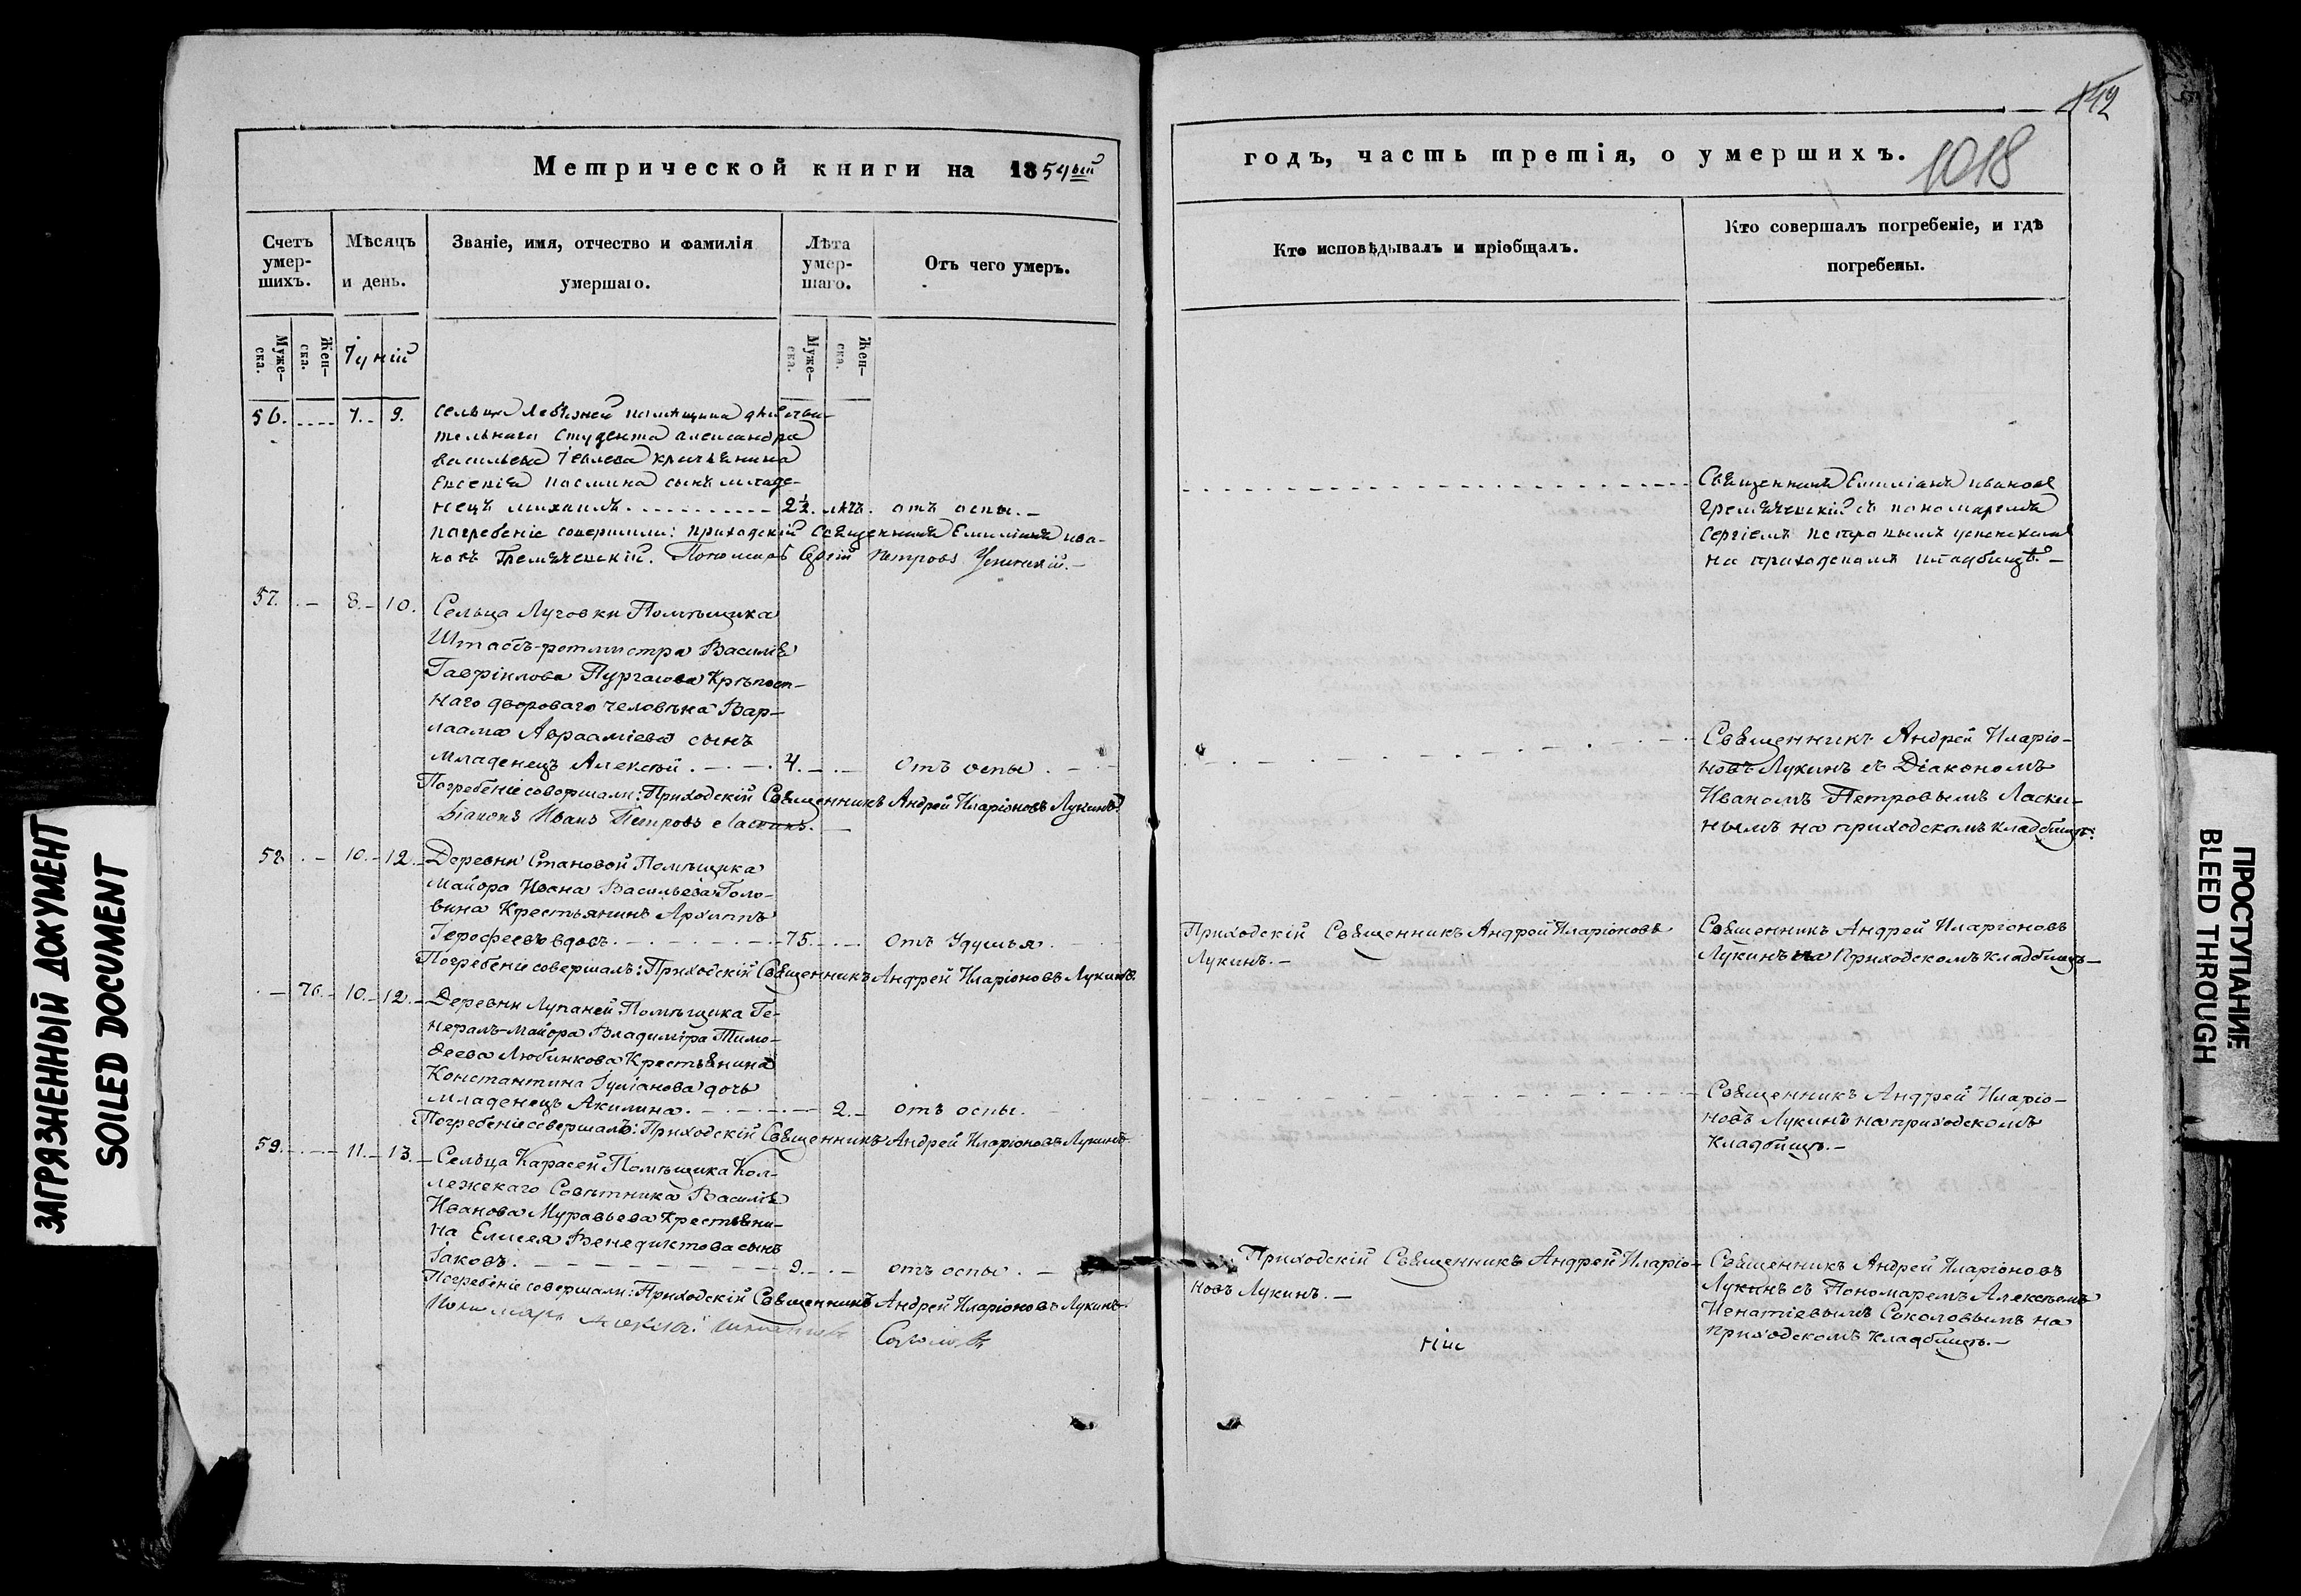 142
1018
Метрической книги на 1854ый
годъ, часть третія, о умершихъ.
Счетъ умер-шихъ.
Мѣсяцъ и день.
Званіе, имя, отчество и фамилія умершаго.
Лѣта умер-шаго.
Отъ чего умеръ.
Кто исповѣдывалъ и пріобщалъ.
Кто совершалъ погребеніе, и гдѣ погребены.
Муже-ска.
Жен-ска.
Іуній
Муже-ска.
Жен-ска.
56. 7. 9. Сельца помѣщика дѣйстви-
тельнаго студента александра
васильева крестьянина
сынъ младе-
нецъ михаилъ 2½ лѣтъ. отъ оспы.
погребеніе совершили: приходскій священникъ Емиліанъ ива-
новъ Гремяченскій. Пономарь Сергій Петровъ Успенскій.
Священникъ Емиліанъ ивановъ
Гремяченскій съ пономаремъ
Сергіемъ петровымъ успенскимъ
на приходскомъ кладбищѣ.
57. 8. 10. Сельца Луговки Помѣщика
Штабсъ-ротмистра Василія
Гавріилова Пургасова Крѣпост-
наго двороваго человѣка Вар-
лаама Авраамieва сынъ
младенецъ Алексѣй 4. отъ оспы
Погребеніе совершали: Приходскій Священникъ Андрей Иларіоновъ Лукинъ.
Діаконъ Иванъ Петровъ Ласкинъ.
Священникъ Андрей Иларіо-
новъ Лукинъ съ Діакономъ
Иваномъ Петровымъ Ласки-
нымъ на приходскомъ кладбищѣ.
58 10. 12. Деревни Становой Помѣщика
Майора Ивана Васильева Голо-
вина Крестьянинъ Архиппъ
Іерофеевъ вдовъ. 75. отъ удушья.
Погребеніе совершалъ: Приходскій Священникъ Андрей Иларіоновъ Лукинъ.
Приходскій Священникъ Андрей Иларіоновъ
Лукинъ.
Священникъ Андрей Иларіоновъ
Лукинъ на Приходскомъ кладбищѣ
76. 10. 12. Деревни Лупаней Помѣщика Ге-
нералъ-Майора Владиміра Тимо-
ѳеева Любинкова Крестьянина
Константина Іуліанова дочь
младенецъ Акилина. 2. отъ оспы.
Погребеніе совершалъ: Приходскій Священникъ Андрей Иларіоновъ Лукинъ.
Священникъ Андрей Иларіо-
новъ Лукинъ на приходскомъ
кладбищѣ.
59. 11. 13. Сельца Карасей Помѣщика Кол-
лежскаго Совѣтника Василія
Иванова Муравьева Крестьяни-
на Елисея Венедиктова сынъ
Іаковъ. 9. отъ оспы.
Погребеніе совершали: Приходскій Священникъ Андрей Иларіоновъ Лукинъ.
Пономарь Алексѣй Соколовъ
Приходскій Священникъ Андрей Иларіо-
новъ Лукинъ.
Священникъ Андрей Иларіоновъ
Лукинъ съ Пономаремъ Алексѣемъ
Игнатіевымъ Соколовымъ на
приходскомъ кладбищѣ.
ЗАГРЯЗНЕННЫЙ ДОКУМЕНТ
SOILED DOCUMENT
ПРОСТУПАНИЕ
BLEED THROUGH